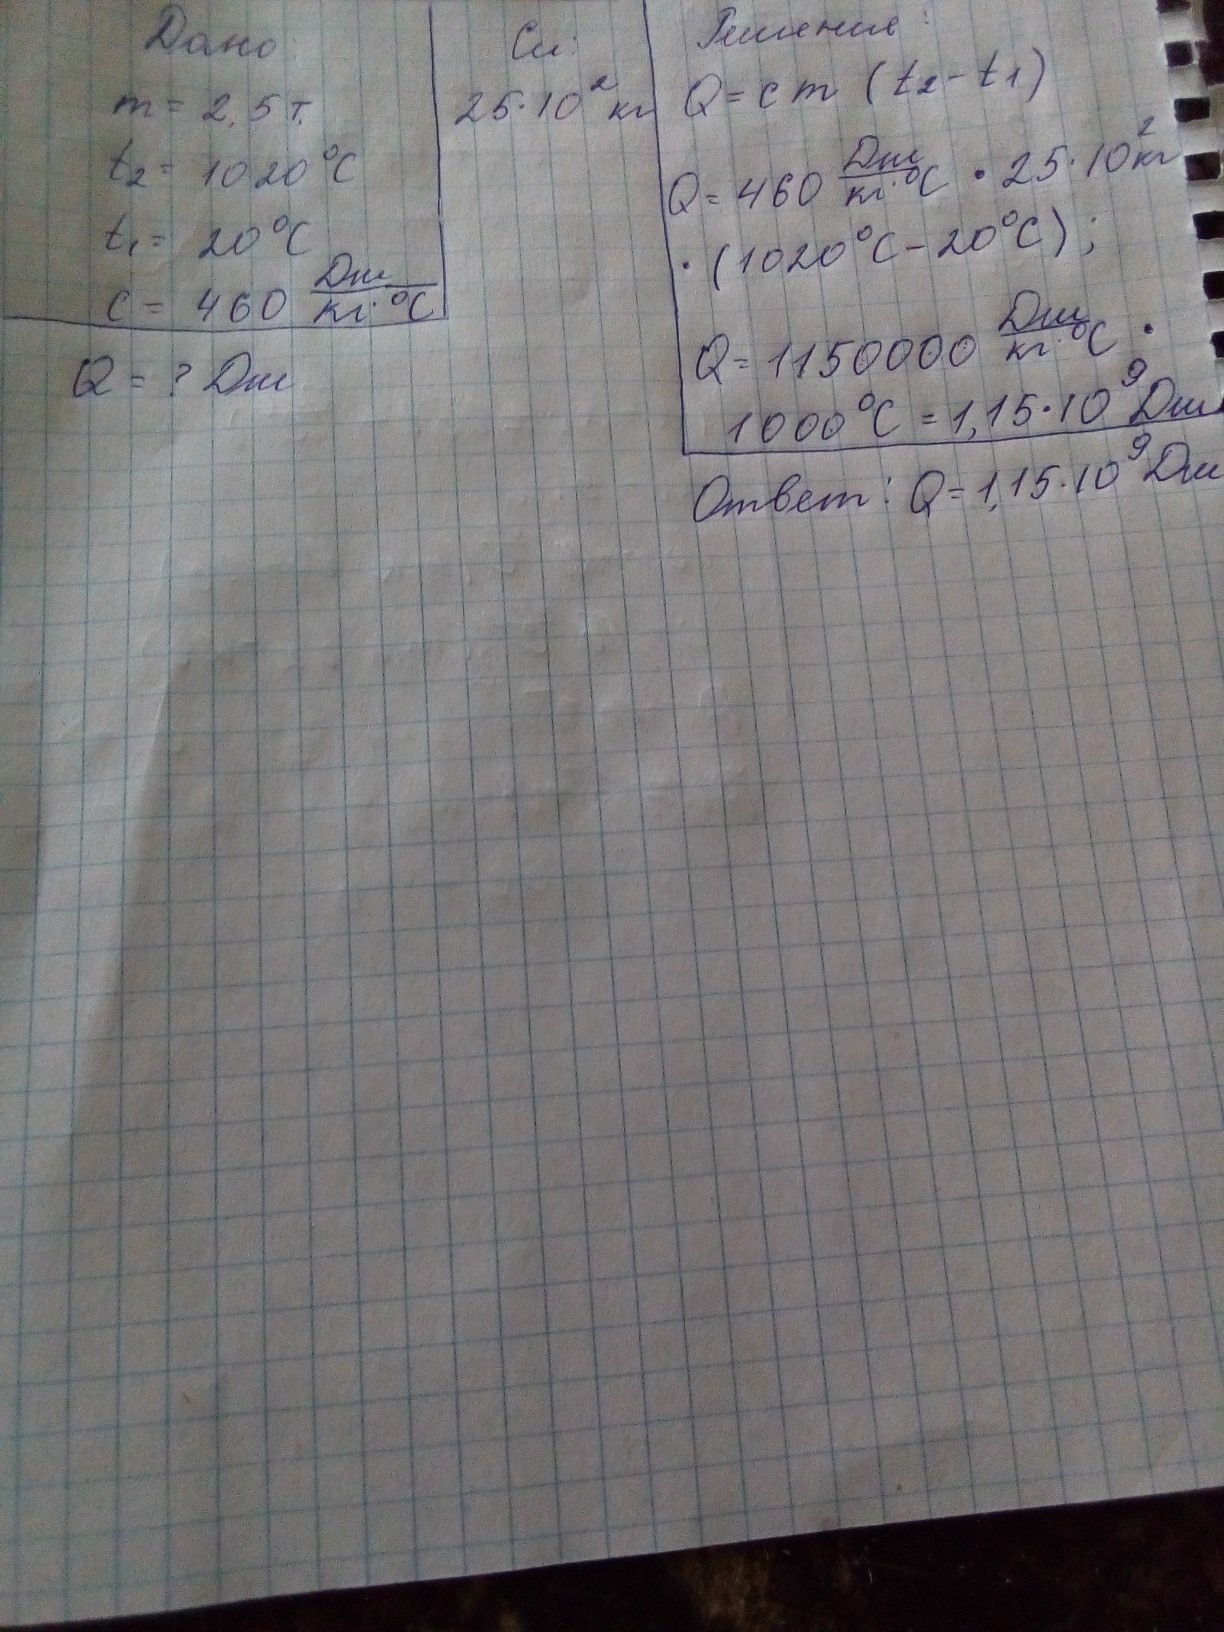 Дано:
m = 2,5 т.
t₂ = 1020°C
t₁ = 20°C
c = 460 Дж/кг·°C
Q = ? Дж
Си:
25·10² кг
Решение:
Q = c m (t₂ - t₁)
Q = 460 Дж/кг·°C · 25·10² кг
· (1020°C - 20°C);
Q = 1150000 Дж/кг·°C ·
1000°C = 1,15·10⁹ Дж
Ответ: Q = 1,15·10⁹ Дж